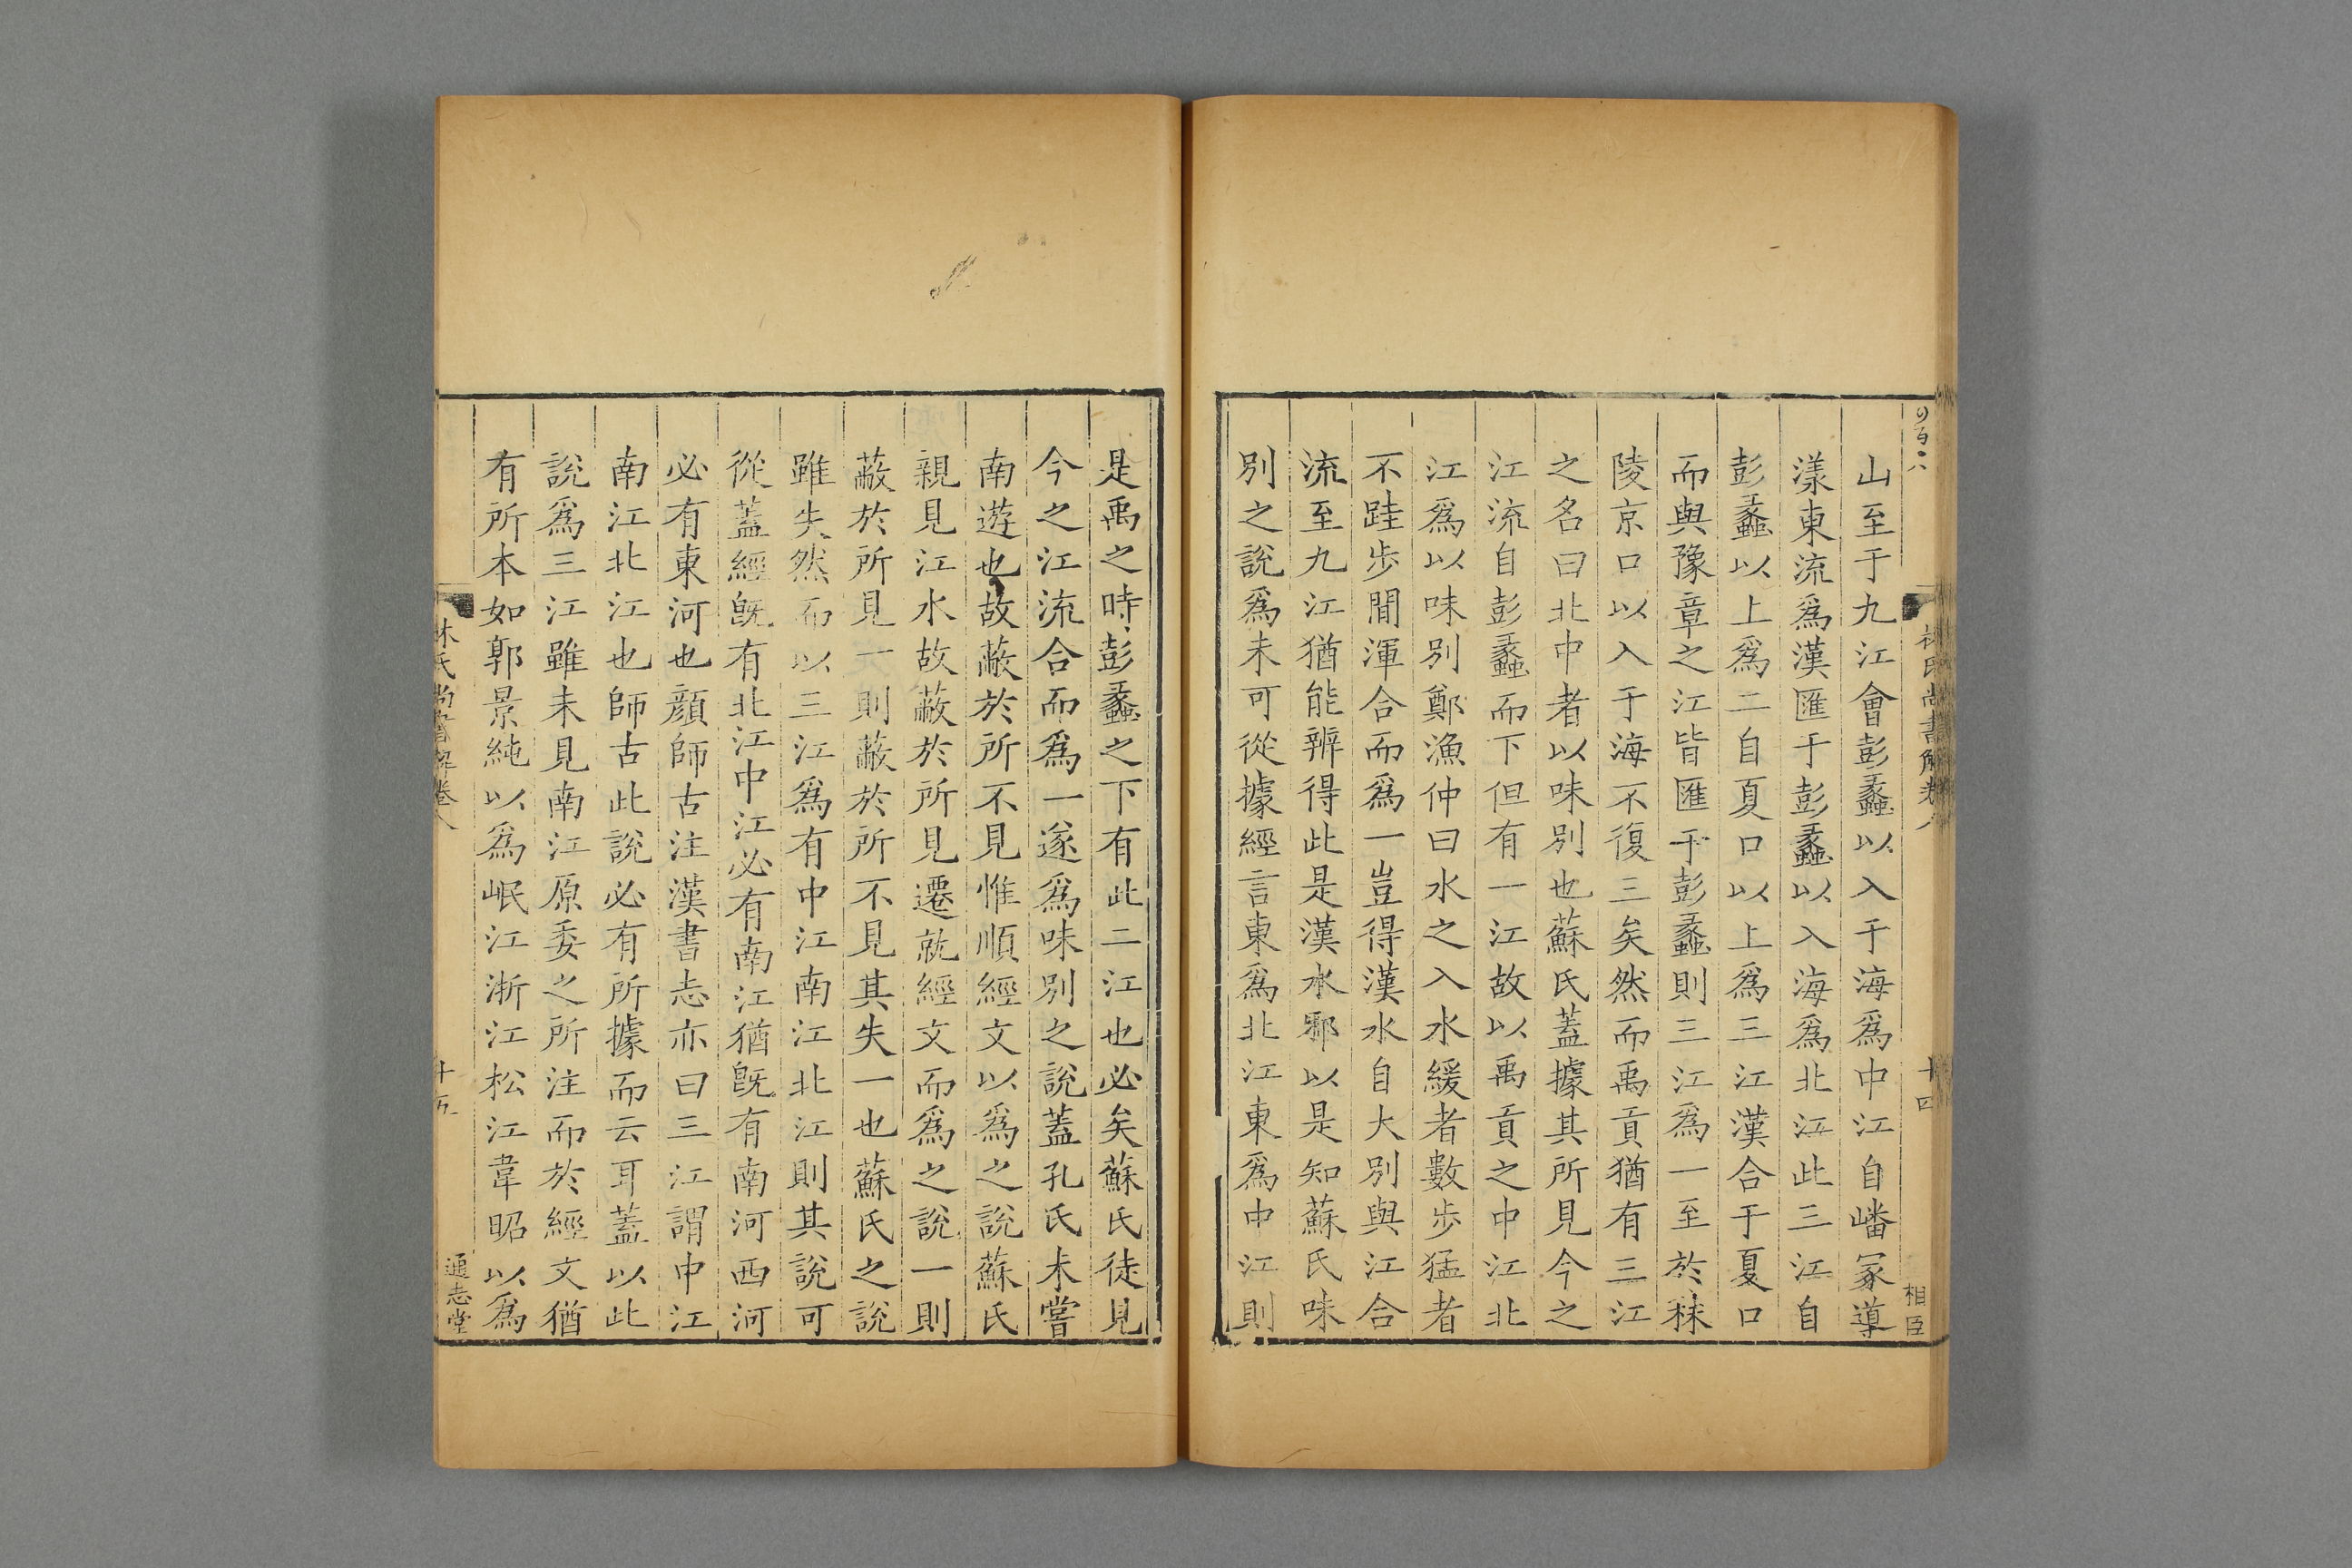 山至于九江會彭蠡以入于海爲中江自嶓冢導
漾東流爲漢匯于彭蠡以入海爲北江此三江自
彭蠡以上爲二自夏口以上爲三江漢合于夏口
而與豫章之江皆匯于彭蠡則三江爲一至於秣
陵京口以入于海不復三矣然而禹貢猶有三江
之名曰北中者以味別也蘇氏蓋據其所見今之
江流自彭蠡而下但有一江故以禹貢之中江北
江爲以味別鄭漁仲曰水之入水緩者數步猛者
不跬步閒渾合而爲一豈得漢水自大別與江合
流至九江猶能辨得此是漢水邪以是知蘇氏味
別之說爲未可從據經言東爲北江東爲中江則
是禹之時彭蠡之下有此二江也必矣蘇氏徒見
今之江流合而爲一遂爲味別之說蓋孔氏未嘗
南遊也故蔽於所不見惟順經文以爲之說蘇氏
親見江水故蔽於所見遷就經文而爲之說一則
蔽於所見一則蔽於所不見其失一也蘇氏之說
雖失然而以三江爲有中江南江北江則其說可
從蓋經旣有北江中江必有南江猶旣有南河西河
必有東河也顏師古注漢書志亦曰三江謂中江
南江北江也師古此說必有所據而云耳蓋以此
說爲三江雖未見南江原委之所注而於經文猶
有所本如郭景純以爲岷江浙江松江韋昭以爲
林氏尚書解卷八
十五
通志堂
林氏尚書解卷八
十四
相臣